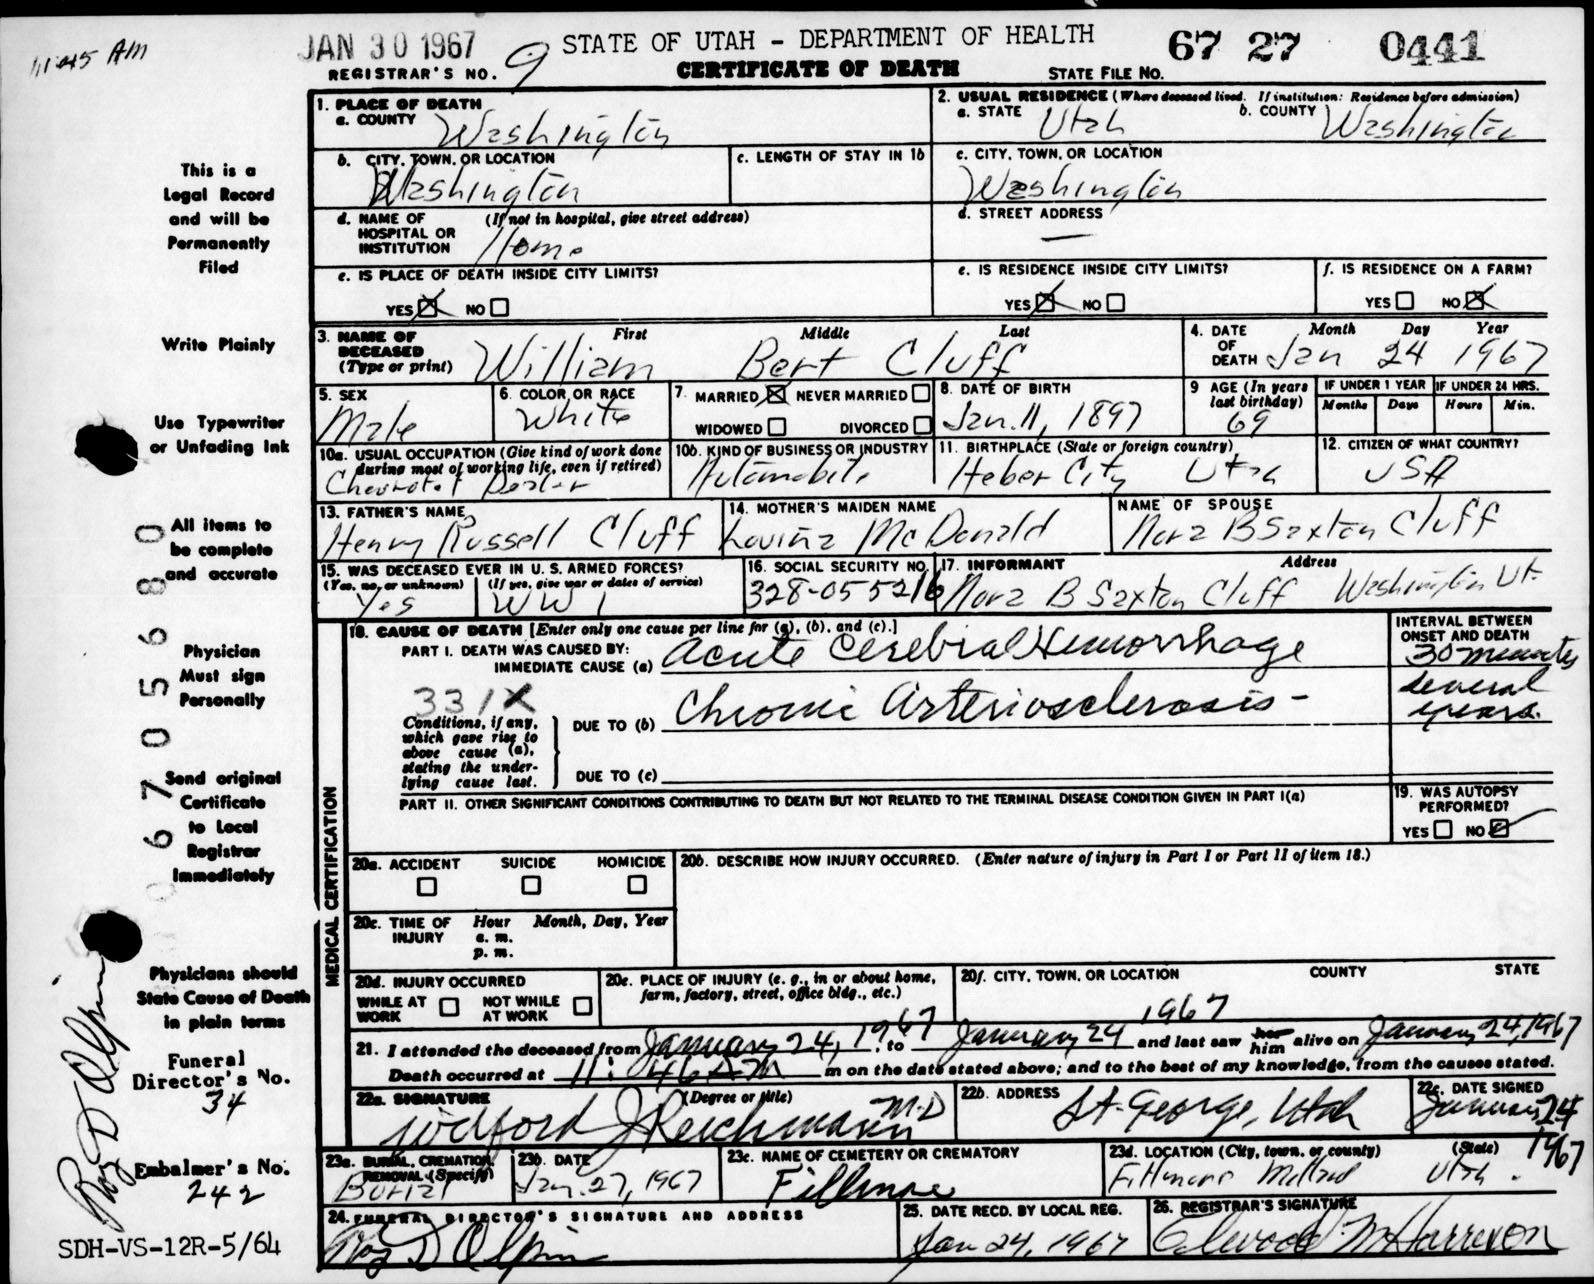 11:45 AM
JAN 30 1967
STATE OF UTAH - DEPARTMENT OF HEALTH
67 27 0441
REGISTRAR'S NO. 9
CERTIFICATE OF DEATH
STATE FILE NO.
1. PLACE OF DEATH
a. COUNTY Washington
2. USUAL RESIDENCE (Where deceased lived. If institution: Residence before admission)
a. STATE Utah b. COUNTY Washington
b. CITY, TOWN, OR LOCATION
Washington
c. LENGTH OF STAY IN 1b
c. CITY, TOWN, OR LOCATION
Washington
d. NAME OF HOSPITAL OR INSTITUTION (If not in hospital, give street address)
Home
d. STREET ADDRESS
—
e. IS PLACE OF DEATH INSIDE CITY LIMITS?
YES NO
e. IS RESIDENCE INSIDE CITY LIMITS?
YES NO
f. IS RESIDENCE ON A FARM?
YES NO
3. NAME OF DECEASED (Type or print)
First Middle Last
William Bert Cluff
4. DATE OF DEATH
Month Day Year
Jan 24 1967
5. SEX
Male
6. COLOR OR RACE
White
7. MARRIED NEVER MARRIED
WIDOWED DIVORCED
8. DATE OF BIRTH
Jan. 11, 1897
9 AGE (In years last birthday)
69
IF UNDER 1 YEAR
Months Days
IF UNDER 24 HRS.
Hours Min.
10a. USUAL OCCUPATION (Give kind of work done during most of working life, even if retired)
Chevrolet Dealer
10b. KIND OF BUSINESS OR INDUSTRY
Automobile
11. BIRTHPLACE (State or foreign country)
Heber City Utah
12. CITIZEN OF WHAT COUNTRY?
USA
13. FATHER'S NAME
Henry Russell Cluff
14. MOTHER'S MAIDEN NAME
Lovina McDonald
NAME OF SPOUSE
Nora B Saxton Cluff
15. WAS DECEASED EVER IN U.S. ARMED FORCES?
(Yes, no, or unknown) (If yes, give war or dates of service)
Yes WW 1
16. SOCIAL SECURITY NO.
328-05 5216
17. INFORMANT Address
Nora B Saxton Cluff Washington Ut.
MEDICAL CERTIFICATION
18. CAUSE OF DEATH [Enter only one cause per line for (a), (b), and (c).]
PART I. DEATH WAS CAUSED BY:
IMMEDIATE CAUSE (a) Acute Cerebral Hemorrhage
INTERVAL BETWEEN ONSET AND DEATH
30 minutes
331X
Conditions, if any, which gave rise to above cause (a), stating the underlying cause last.
DUE TO (b) Chronic Arteriosclerosis -
several years.
DUE TO (c)
PART II. OTHER SIGNIFICANT CONDITIONS CONTRIBUTING TO DEATH BUT NOT RELATED TO THE TERMINAL DISEASE CONDITION GIVEN IN PART I(a)
19. WAS AUTOPSY PERFORMED?
YES NO
20a. ACCIDENT SUICIDE HOMICIDE
20b. DESCRIBE HOW INJURY OCCURRED. (Enter nature of injury in Part I or Part II of item 18.)
20c. TIME OF INJURY
Hour Month, Day, Year
a. m.
p. m.
20d. INJURY OCCURRED
WHILE AT WORK NOT WHILE AT WORK
20e. PLACE OF INJURY (e. g., in or about home, farm, factory, street, office bldg., etc.)
20f. CITY, TOWN, OR LOCATION COUNTY STATE
21. I attended the deceased from January 24, 1967 to January 24 1967 and last saw her him alive on January 24, 1967
Death occurred at 11:46 AM m on the date stated above; and to the best of my knowledge, from the causes stated.
22a. SIGNATURE (Degree or title)
Wilford J Reichmann M.D
22b. ADDRESS
St. George, Utah
22c. DATE SIGNED
January 24 1967
23a. BURIAL, CREMATION, REMOVAL (Specify)
Burial
23b. DATE
Jan. 27, 1967
23c. NAME OF CEMETERY OR CREMATORY
Fillmore
23d. LOCATION (City, town, or county) (State)
Fillmore Millard Utah.
24. FUNERAL DIRECTOR'S SIGNATURE AND ADDRESS
Roy D Olpin
25. DATE RECD. BY LOCAL REG.
Jan 24, 1967
26. REGISTRAR'S SIGNATURE
Elwood McHarrison
This is a
Legal Record
and will be
Permanently
Filed
Write Plainly
Use Typewriter
or Unfading Ink
All items to
be complete
and accurate
Physician
Must sign
Personally
Send original
Certificate
to Local
Registrar
Immediately
Physicians should
State Cause of Death
in plain terms
Funeral
Director's No.
34
Embalmer's No.
242
Roy D Olpin
0 6 7 0 5 6 8 0
SDH-VS-12R-5/64